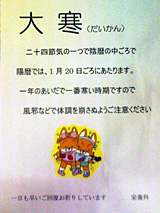 大寒(だいかん)
二十四節気の一つで陰暦の中ごろで
陽暦では、1月20日ごろにあたります。
一年のあいだで一番寒い時期ですので
風邪などで体調を崩さぬようご注意ください
一日も早いご回復お祈りしています 栄養科